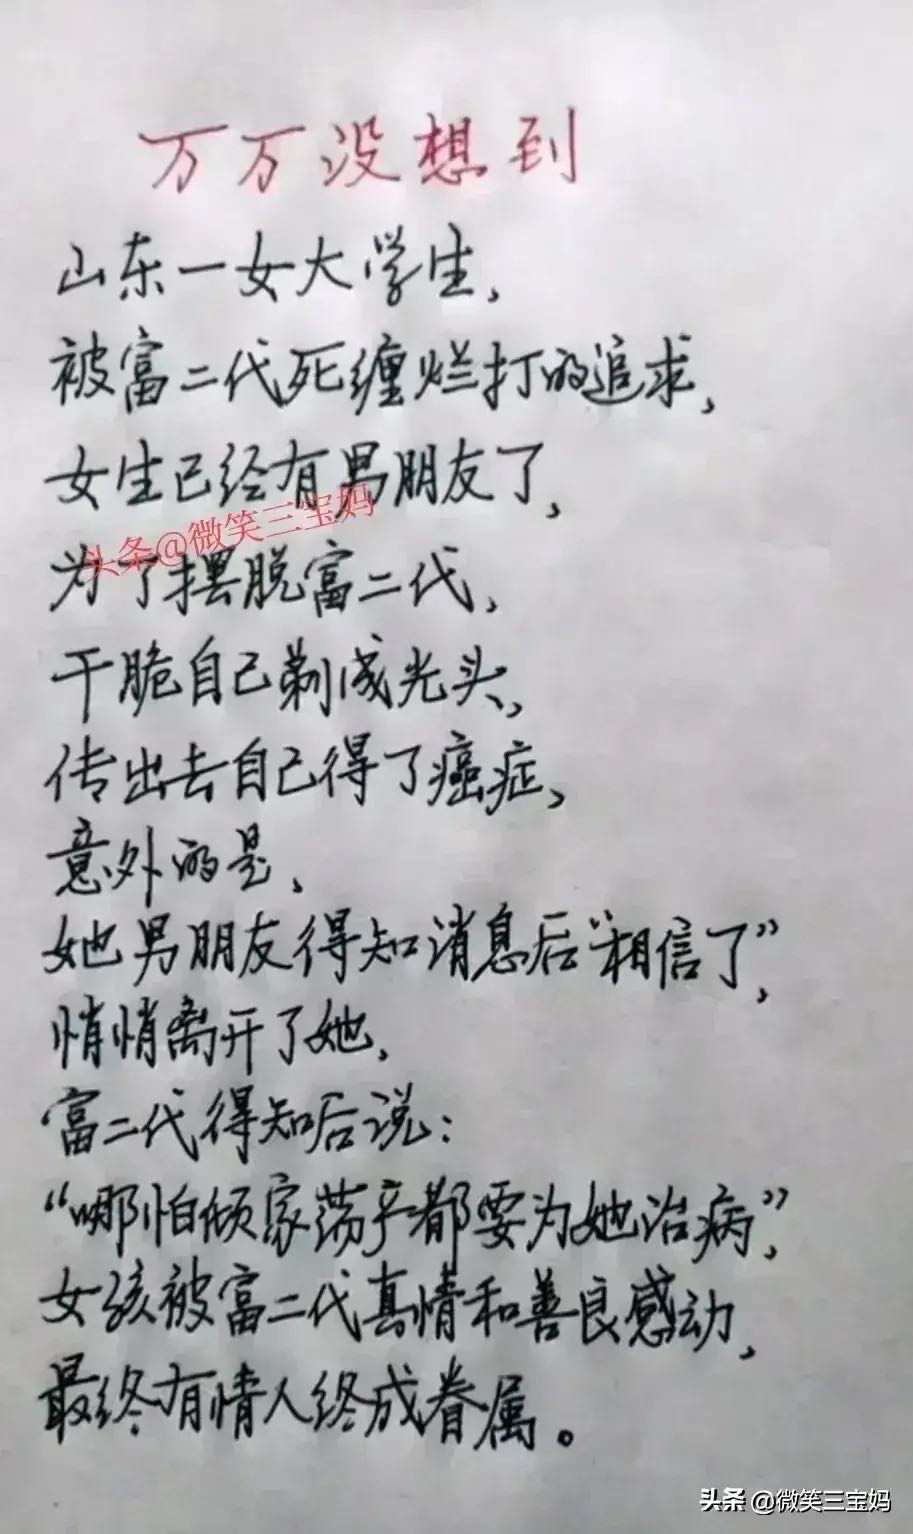 万万没想到
山东一女大学生,
被富二代死缠烂打的追求,
女生已经有男朋友了,
头条@微笑三宝妈
为了摆脱富二代,
干脆自己剃成光头,
传出去自己得了癌症,
意外的是,
她男朋友得知消息后“相信了”,
悄悄离开了她,
富二代得知后说:
“哪怕倾家荡产都要为她治病”,
女孩被富二代真情和善良感动,
最终有情人终成眷属。
头条 @微笑三宝妈